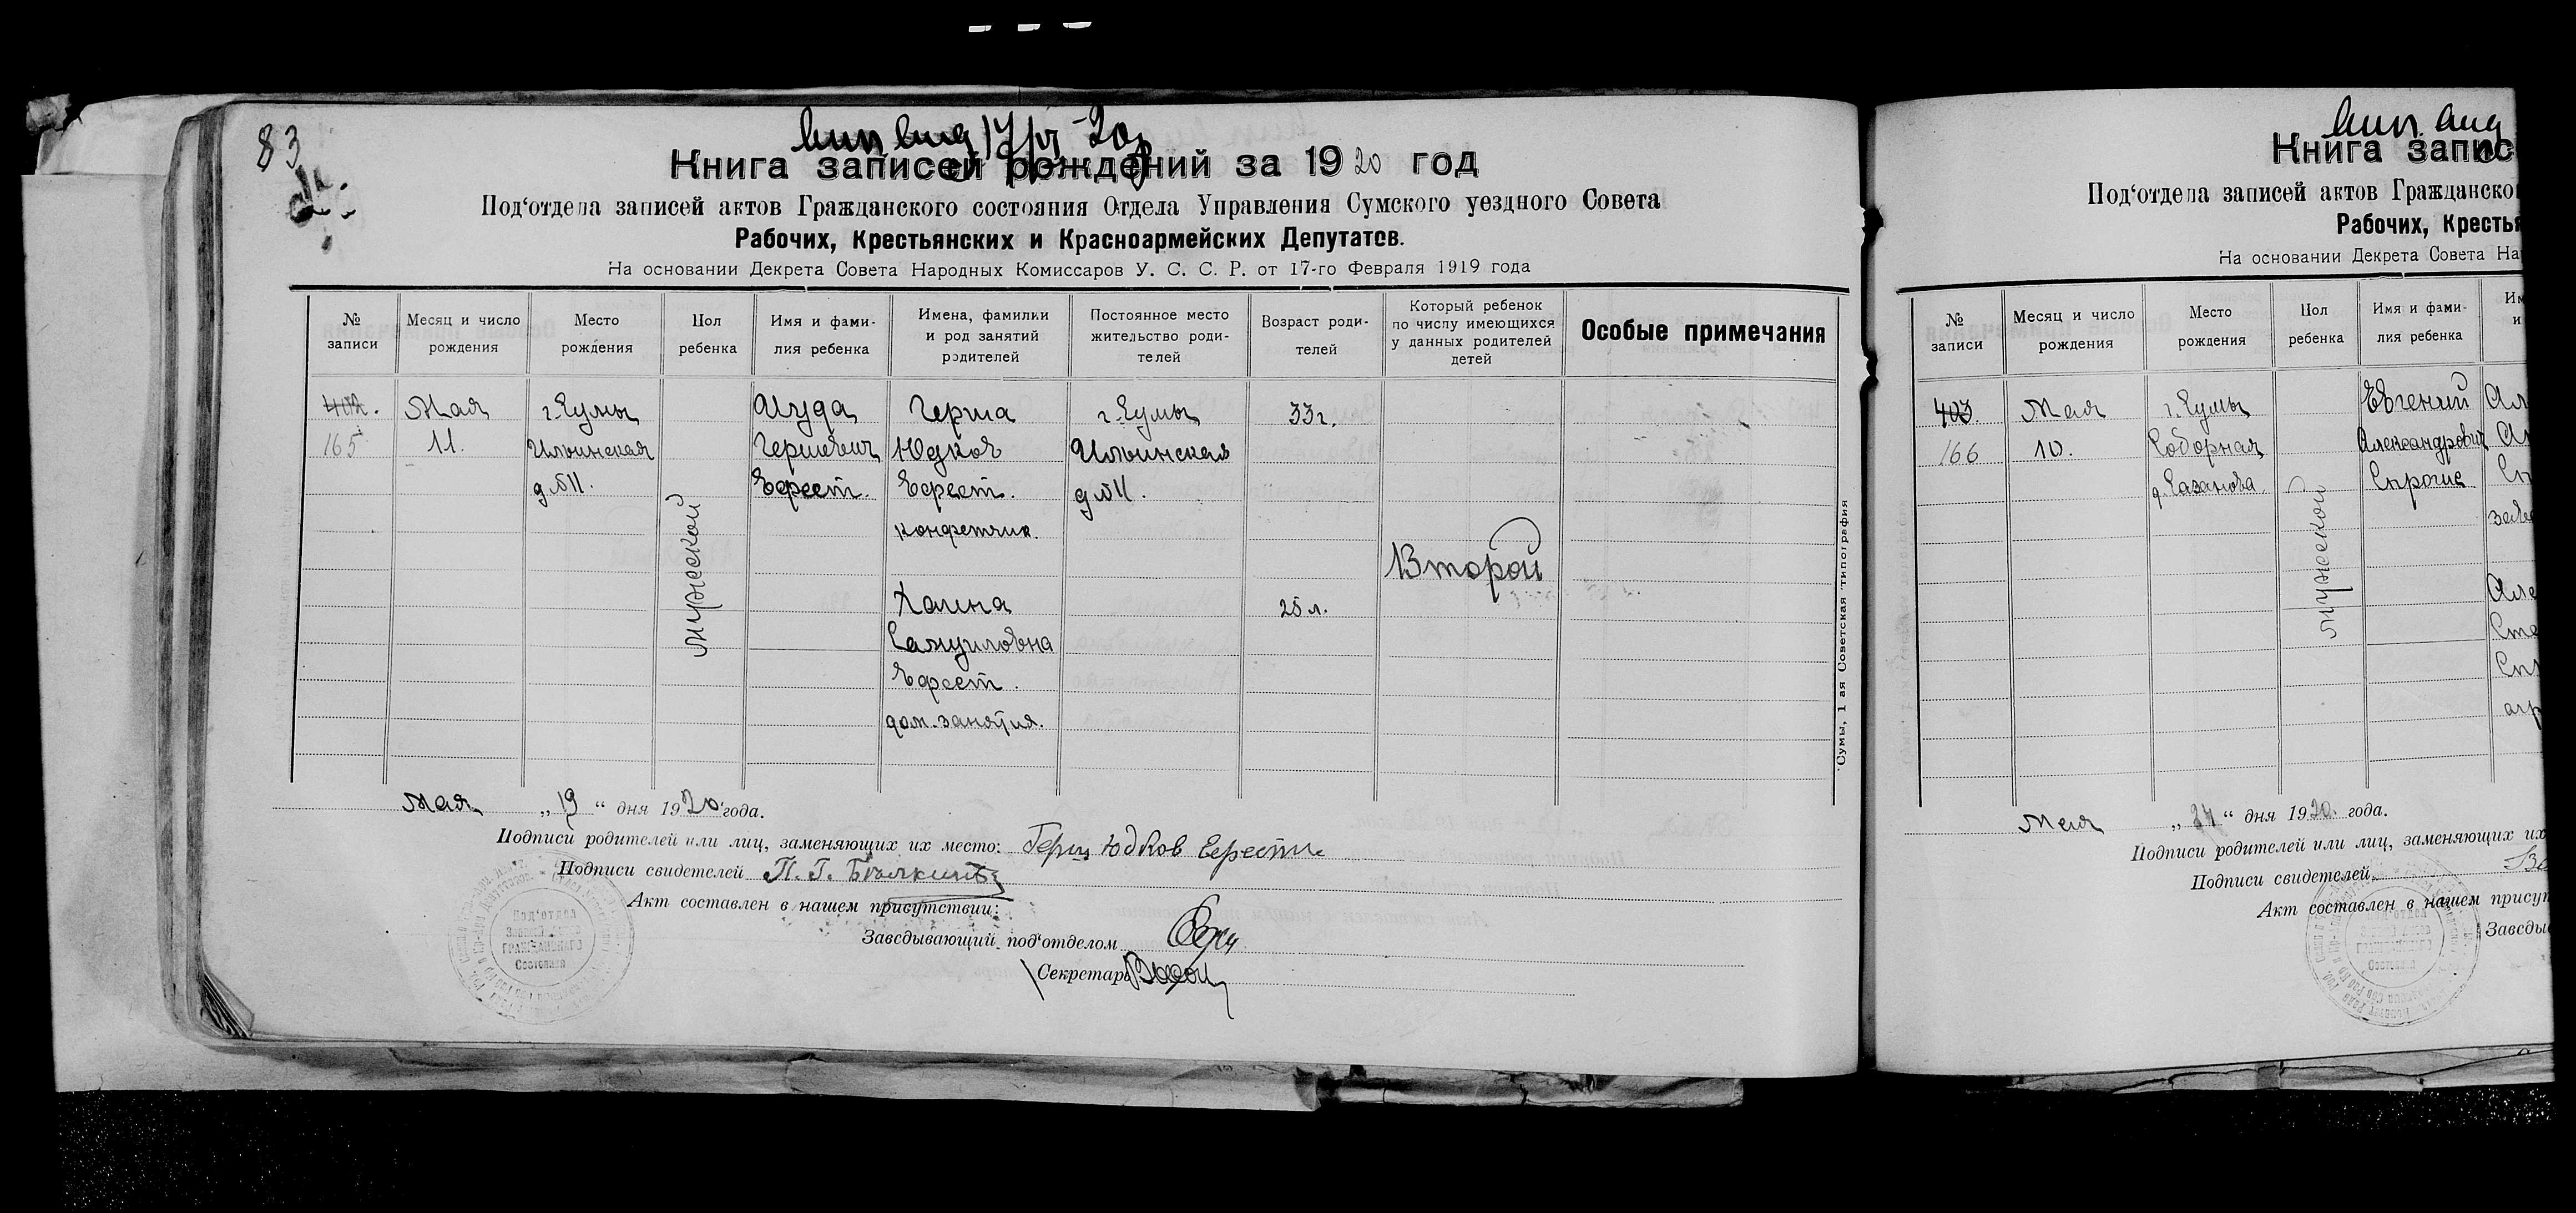 83
Книга записей рождений за 1920 год
Под‘отдела записей актов Гражданского состояния Отдела Управления Сумского уездного Совета
Рабочих, Крестьянских и Красноармейских Депутатов.
На основании Декрета Совета Народных Комиссаров У. С. С. Р. от 17-го Февраля 1919 года
№ записи
Месяц и число рождения
Место рождения
Пол ребенка
Имя и фами-
лия ребенка
Имена, фамилки
и род занятий
родителей
Постоянное место
жительство роди-
телей
Возраст роди-
телей
Который ребенок
по числу имеющихся
у данных родителей
детей
Особые примечания
402.
165
Мая
11.
г. Сумы
Ильинская
д. №11.
мужеской
Иуда
Гершевич
Ефрест.
Герша
Юдков
Ефрест.
конфетчик.
Хаина
Самуиловна
Ефрест.
дом. занятия.
г. Сумы
Ильинская
д. №11.
33 г.
25 л.
Второй
Сумы, 1 ая Советская типография
мая „19“ дня 1920 года.
Подписи родителей или лиц, заменяющих их место: Герш Юдков
Подписи свидетелей П. Г.
Акт составлен в нашем присутствии:
Заведывающий под‘отделом
Секретарь
Под‘отдел
Записи Актов
ГРАЖДАНСКОГО
Состояния
Книга запис
Под‘отдела записей актов Гражданског
Рабочих, Крестья
На основании Декрета Совета На
№ записи
Месяц и число рождения
Место рождения
Пол ребенка
Имя и фами-
лия ребенка
403.
166
Мая
10.
г. Сумы
Соборная
д. Казанова
мужеской
Евгений
Александрович
Спрогис
Мая „24“ дня 1920. года.
Подписи родителей или лиц, заменяющих их
Подписи свидетелей
Акт составлен в нашем присут
Заведы